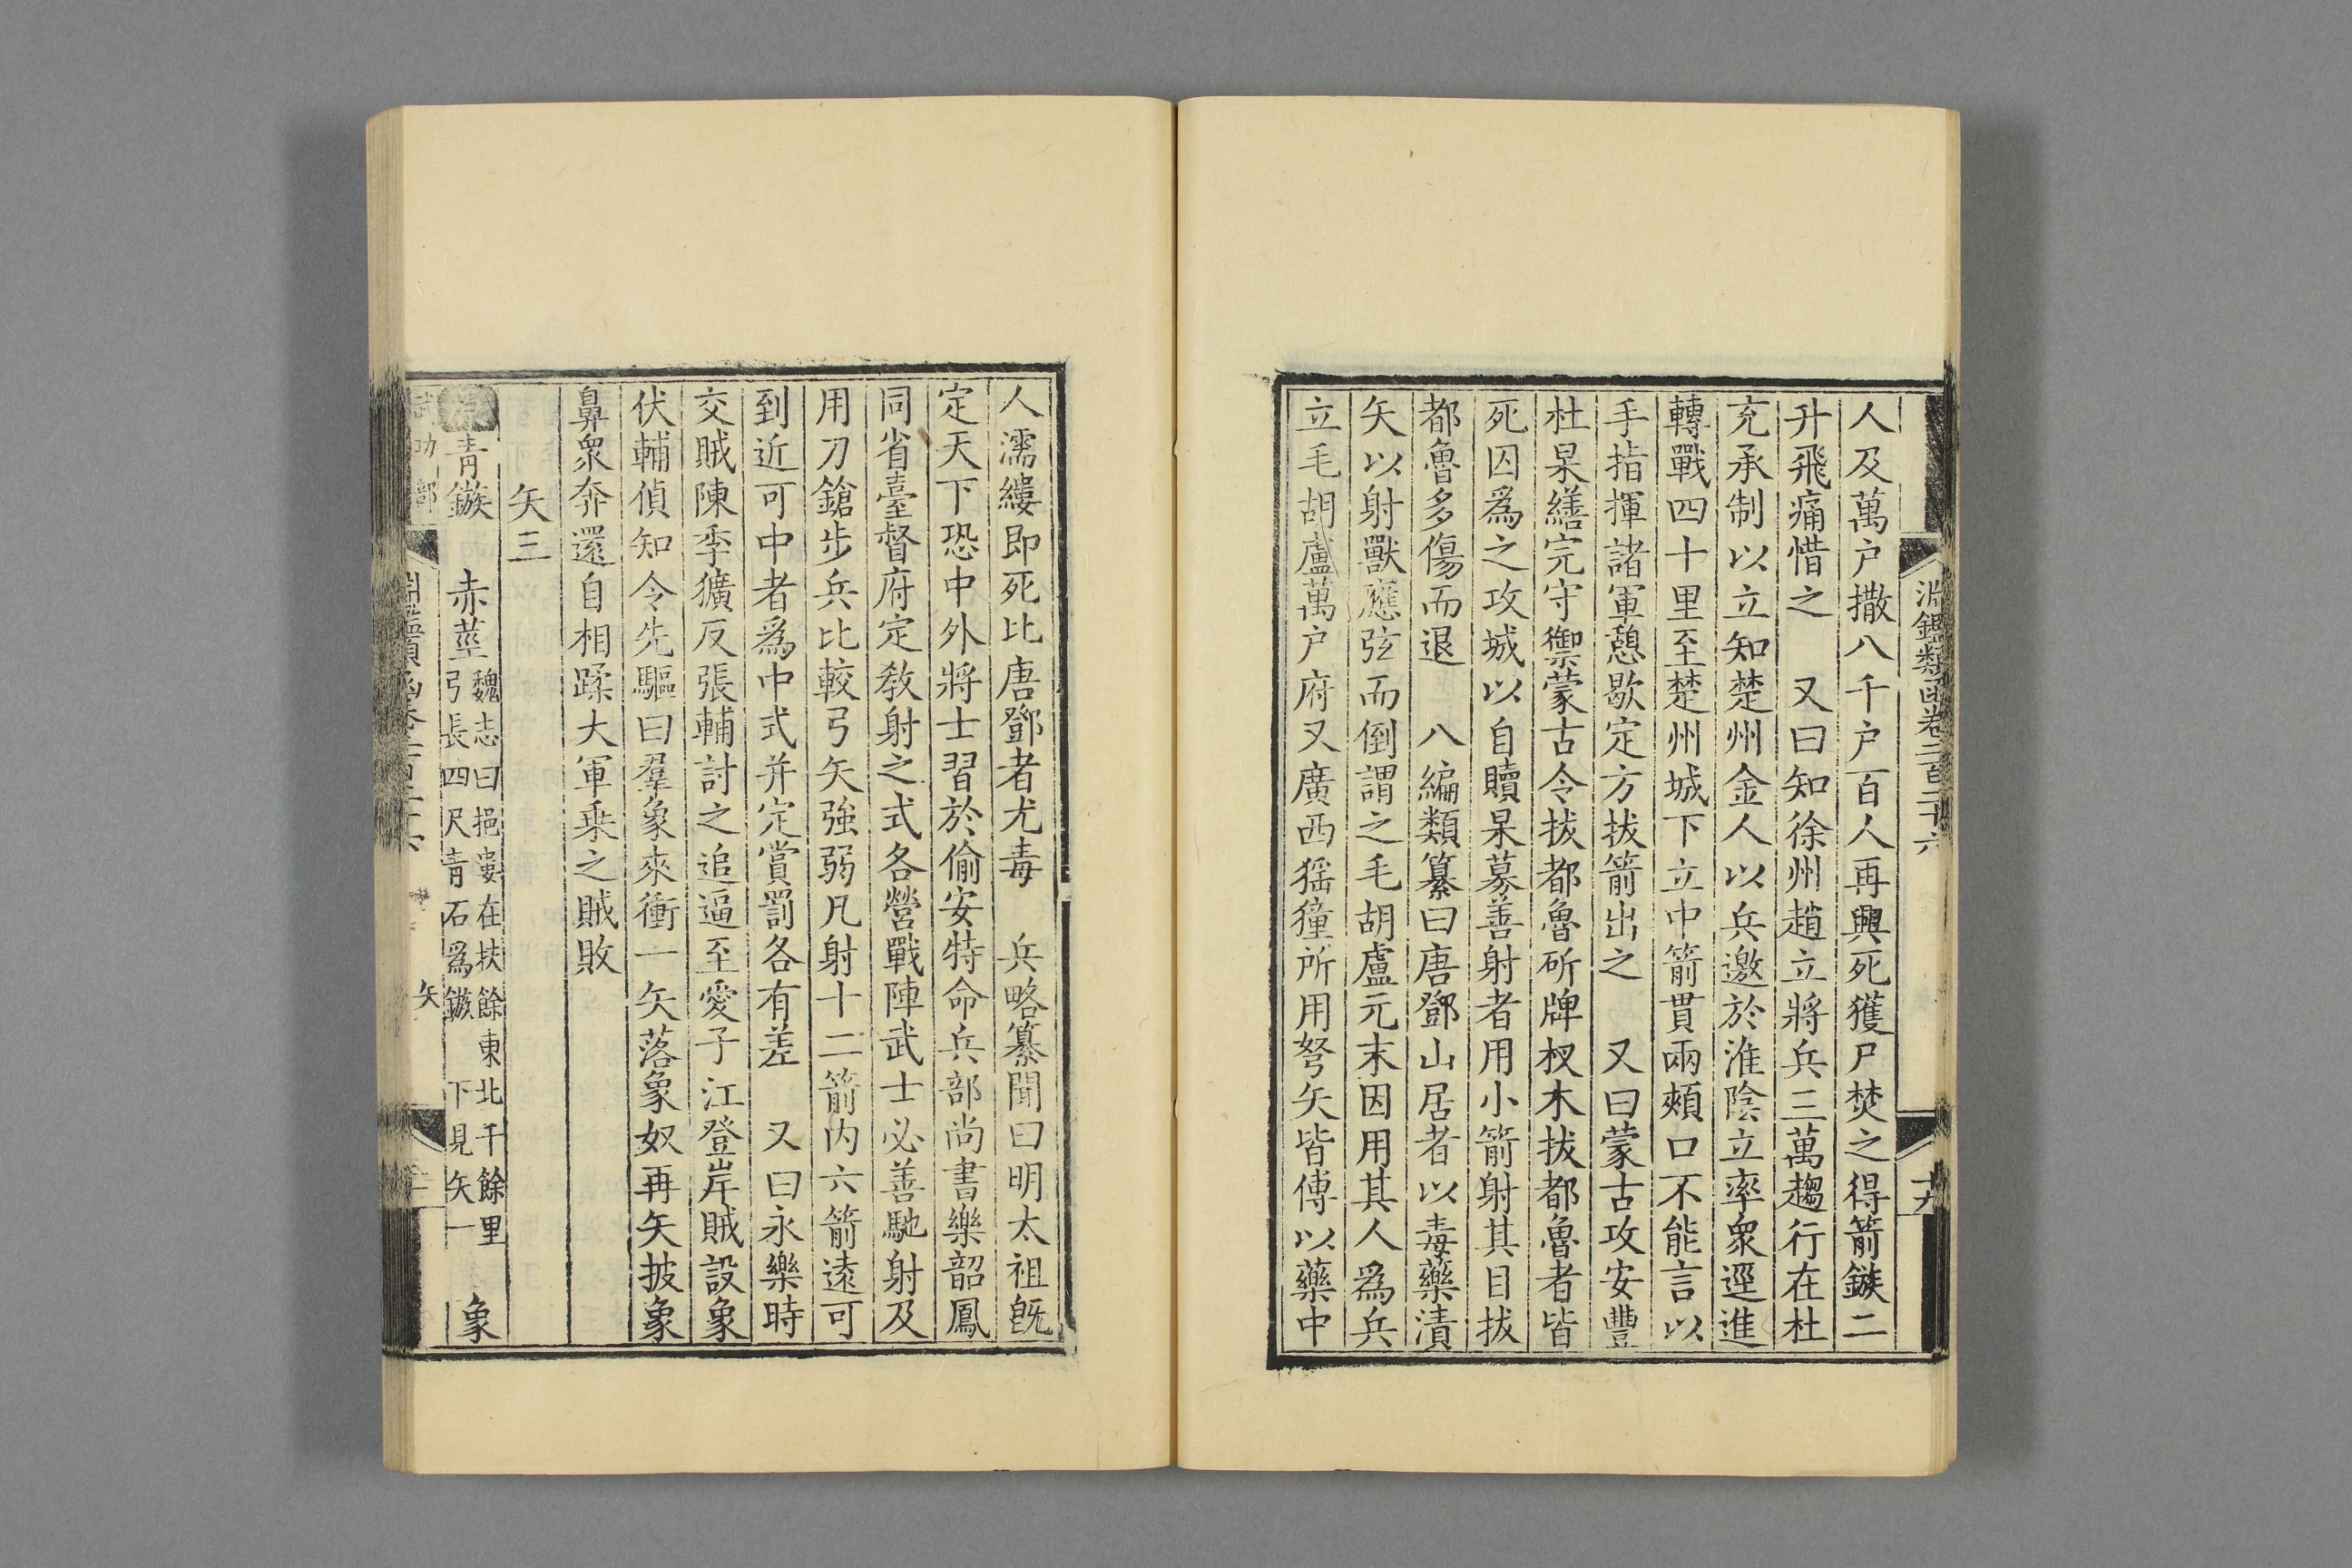 淵鑑類函卷二百二十六
十九
人及萬户撒八千户百人再興死獲尸焚之得箭鏃二
升飛痛惜之　又曰知徐州趙立將兵三萬趨行在杜
充承制以立知楚州金人以兵邀於淮陰立率衆逕進
轉戰四十里至楚州城下立中箭貫兩頰口不能言以
手指揮諸軍憩歇定方拔箭出之　又曰蒙古攻安豐
杜杲繕完守禦蒙古令拔都魯斫牌杈木拔都魯者皆
死囚爲之攻城以自贖杲募善射者用小箭射其目拔
都魯多傷而退　八編類纂曰唐鄧山居者以毒藥漬
矢以射獸應弦而倒謂之毛胡盧元末因用其人爲兵
立毛胡盧萬户府又廣西猺獞所用弩矢皆傅以藥中
人濡縷即死比唐鄧者尤毒　兵略纂聞曰明太祖旣
定天下恐中外將士習於偷安特命兵部尚書樂韶鳳
同省臺督府定教射之式各營戰陣武士必善馳射及
用刀鎗步兵比較弓矢強弱凡射十二箭内六箭遠可
到近可中者爲中式并定賞罰各有差　又曰永樂時
交賊陳季獷反張輔討之追逼至愛子江登岸賊設象
伏輔偵知令先驅曰羣象來衝一矢落象奴再矢披象
鼻衆奔還自相蹂大軍乗之賊敗
矢三
青鏃　赤莖魏志曰挹婁在扶餘東北千餘里弓長四尺青石爲鏃　下見矢一　象
武功部　矢